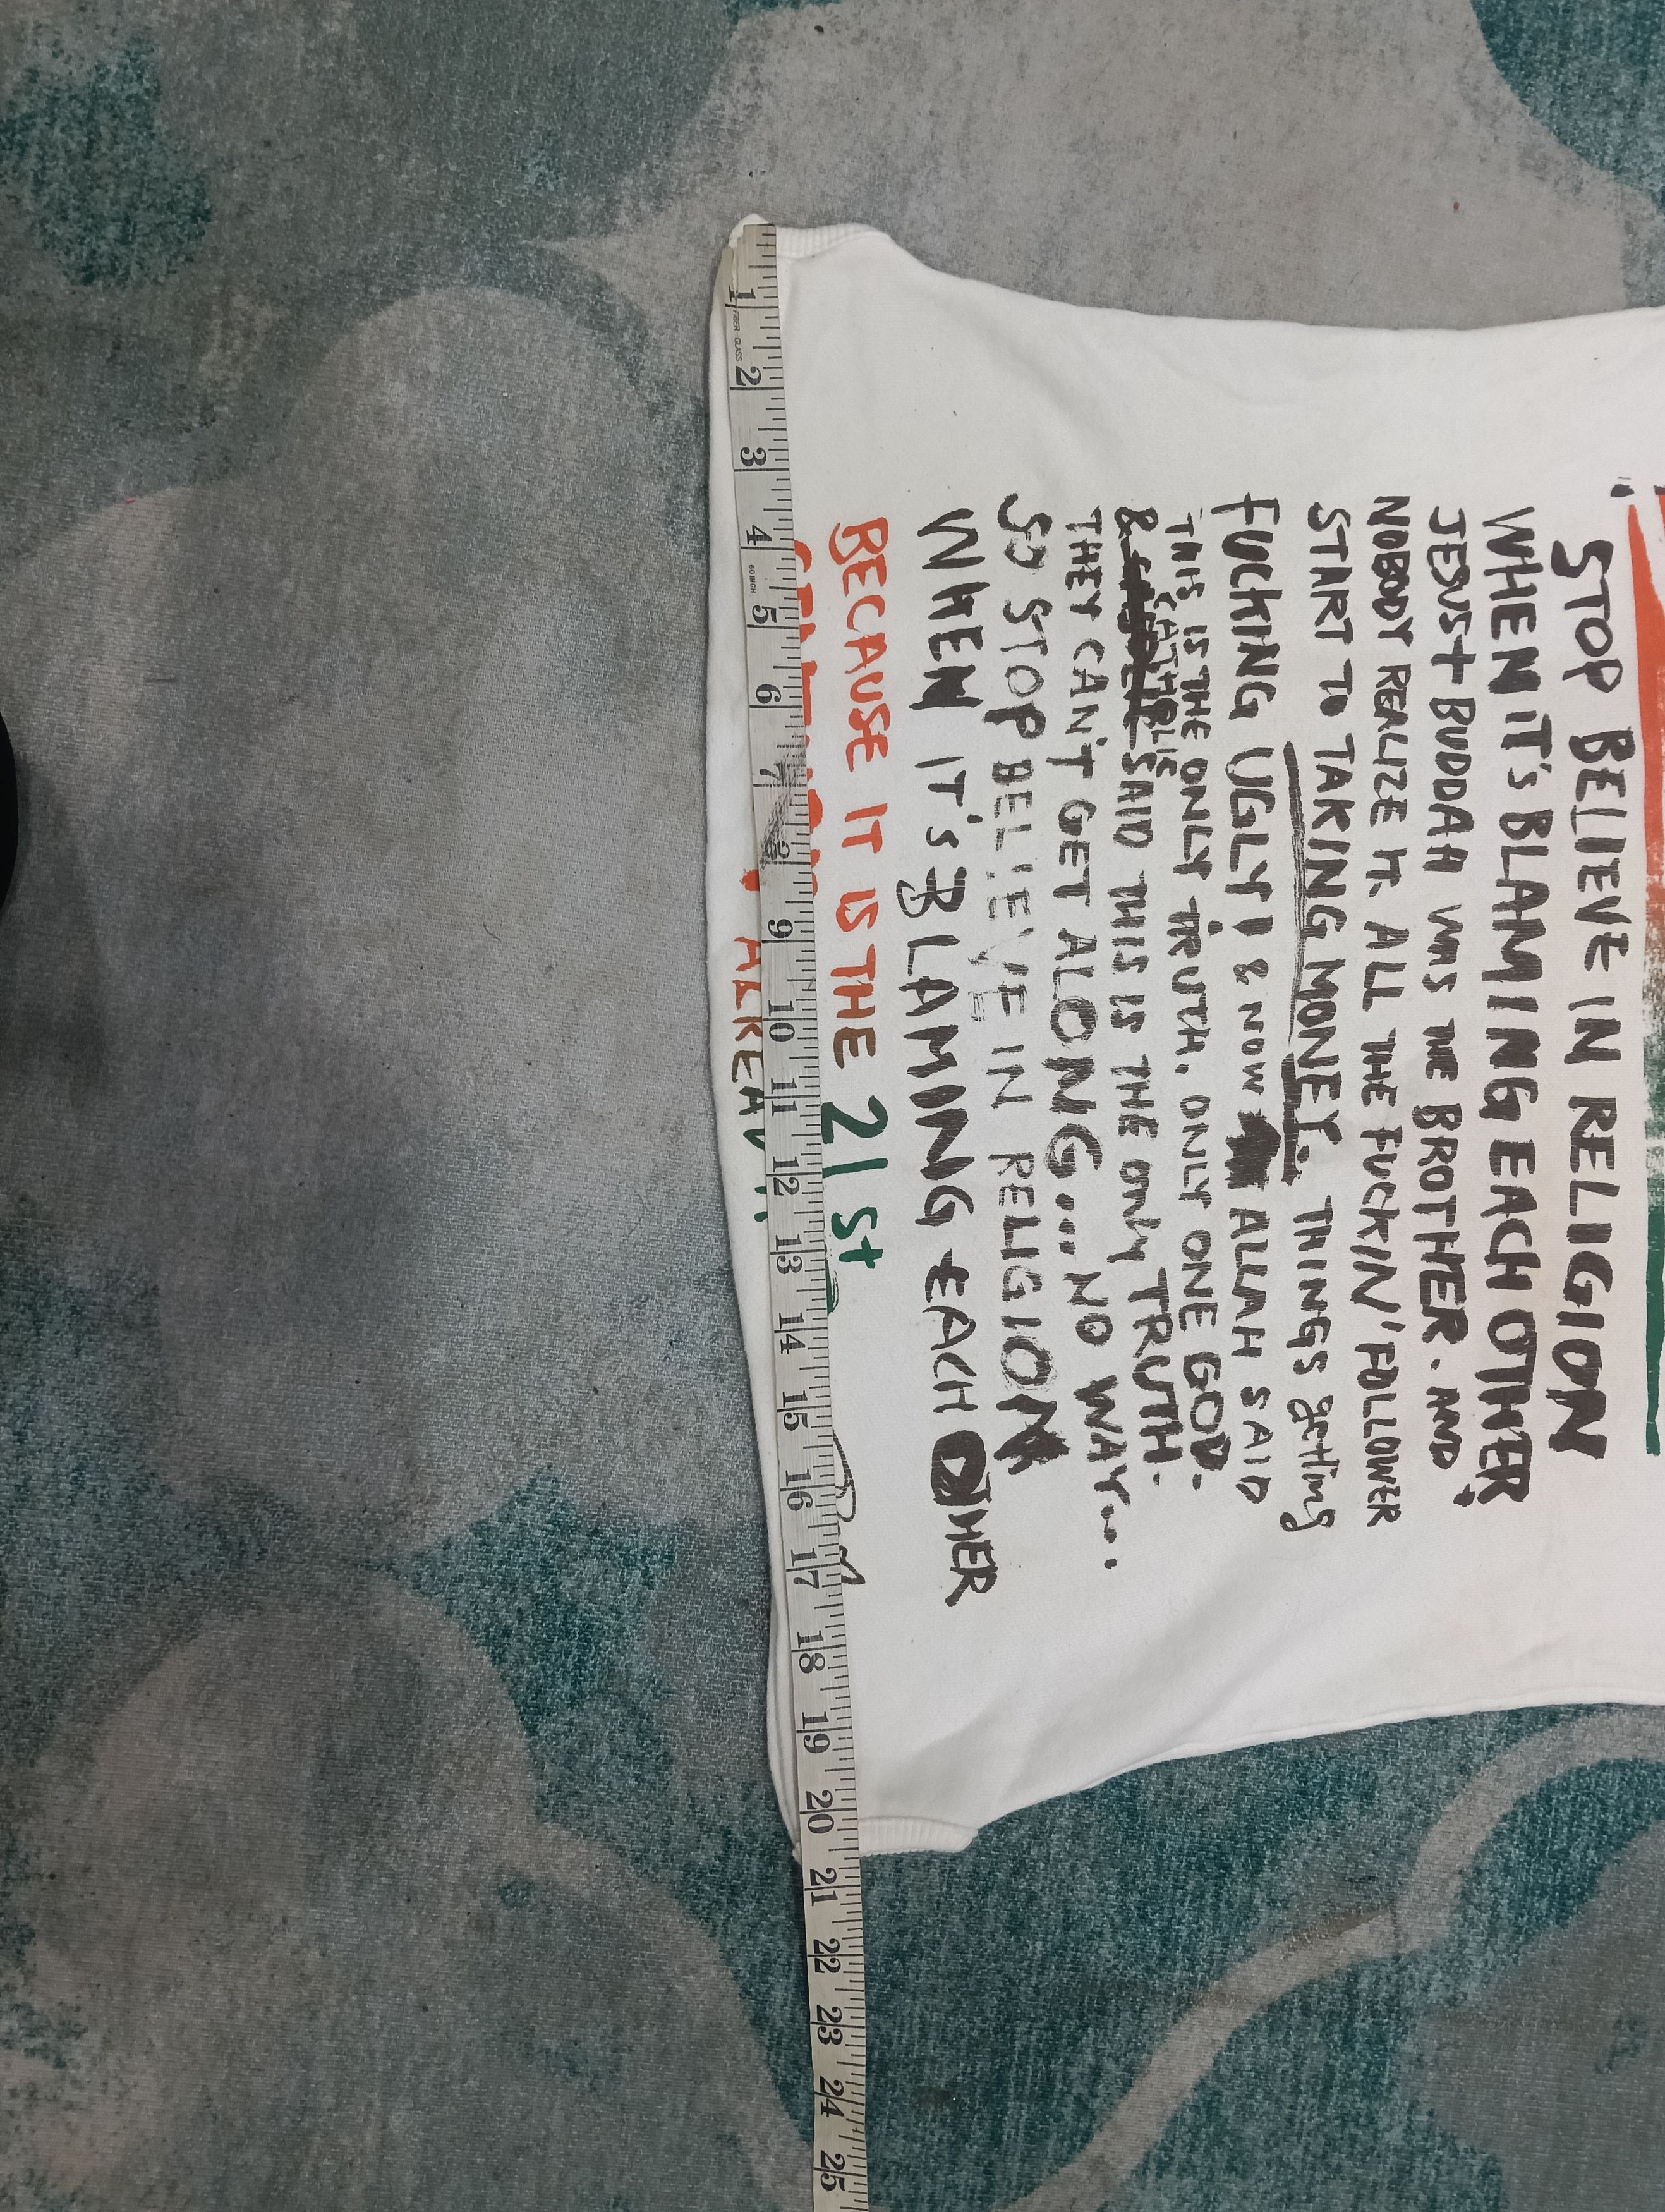 STOP BELIEVE IN RELIGION
WHEN IT'S BLAMING EACH OTHER
JESUS + BUDDAH WAS THE BROTHER. AND
NOBODY REALIZE IT. ALL THE FUCKIN' FOLLOWER
START TO TAKING MONEY. THINGS getting
FUCKING UGLY! & NOW ALLAH SAID
THIS IS THE ONLY TRUTH. ONLY ONE GOD.
CATHOLIC
& SAID THIS IS THE ONLY TRUTH.
THEY CAN'T GET ALONG... NO WAY...
SO STOP BELIEVE IN RELIGION
WHEN IT'S BLAMING EACH OTHER
BECAUSE IT IS THE 21st
1 2 3 4 5 6 7 8 9 10 11 12 13 14 15 16 17 18 19 20 21 22 23 24 25
FIBER-GLASS
60 INCH